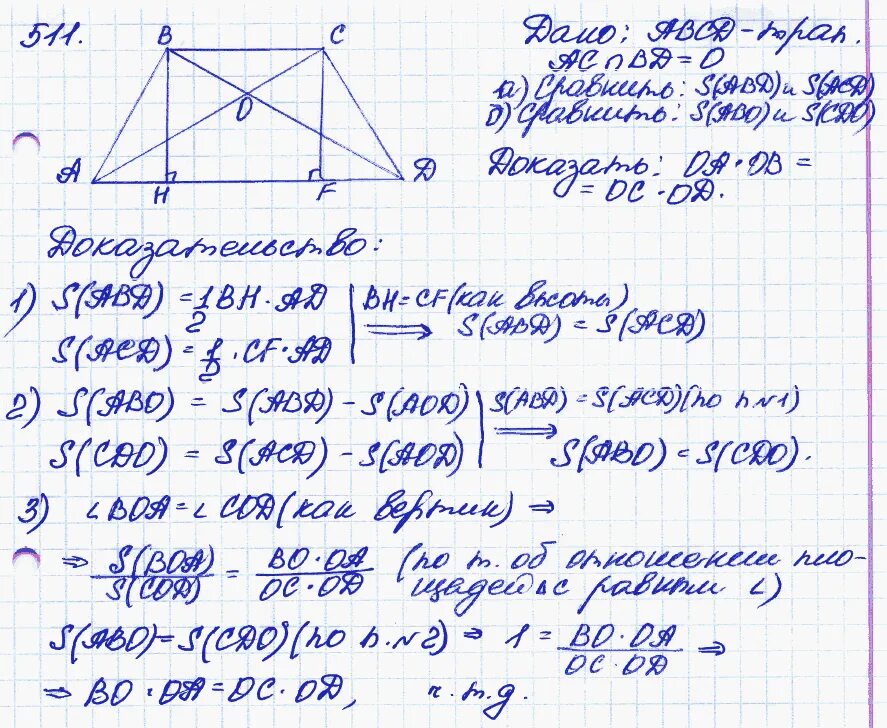 511.
B C
O
A D
H F
Дано: ABCD - трап.
AC ∩ BD = O
а) Сравнить: S(ABD) и S(ACD)
б) Сравнить: S(ABO) и S(CDO)
Доказать: OA · OB =
= OC · OD.
Доказательство:
1) S(ABD) = 1/2 BH · AD
S(ACD) = 1/2 · CF · AD
BH = CF (как высоты)
⟹ S(ABD) = S(ACD)
2) S(ABO) = S(ABD) - S(AOD)
S(CDO) = S(ACD) - S(AOD)
S(ABD) = S(ACD) (по п. №1)
⟹ S(ABO) = S(CDO).
3) ∠BOA = ∠COD (как вертик) ⇒
⇒ S(BOA)/S(COD) = BO · OA/OC · OD (по т. об отношении пло-
щадей Δ с равным ∠)
S(ABO) = S(CDO) (по п. №2) ⇒ 1 = BO · OA/OC · OD ⇒
⇒ BO · OA = OC · OD, ч.т.д.